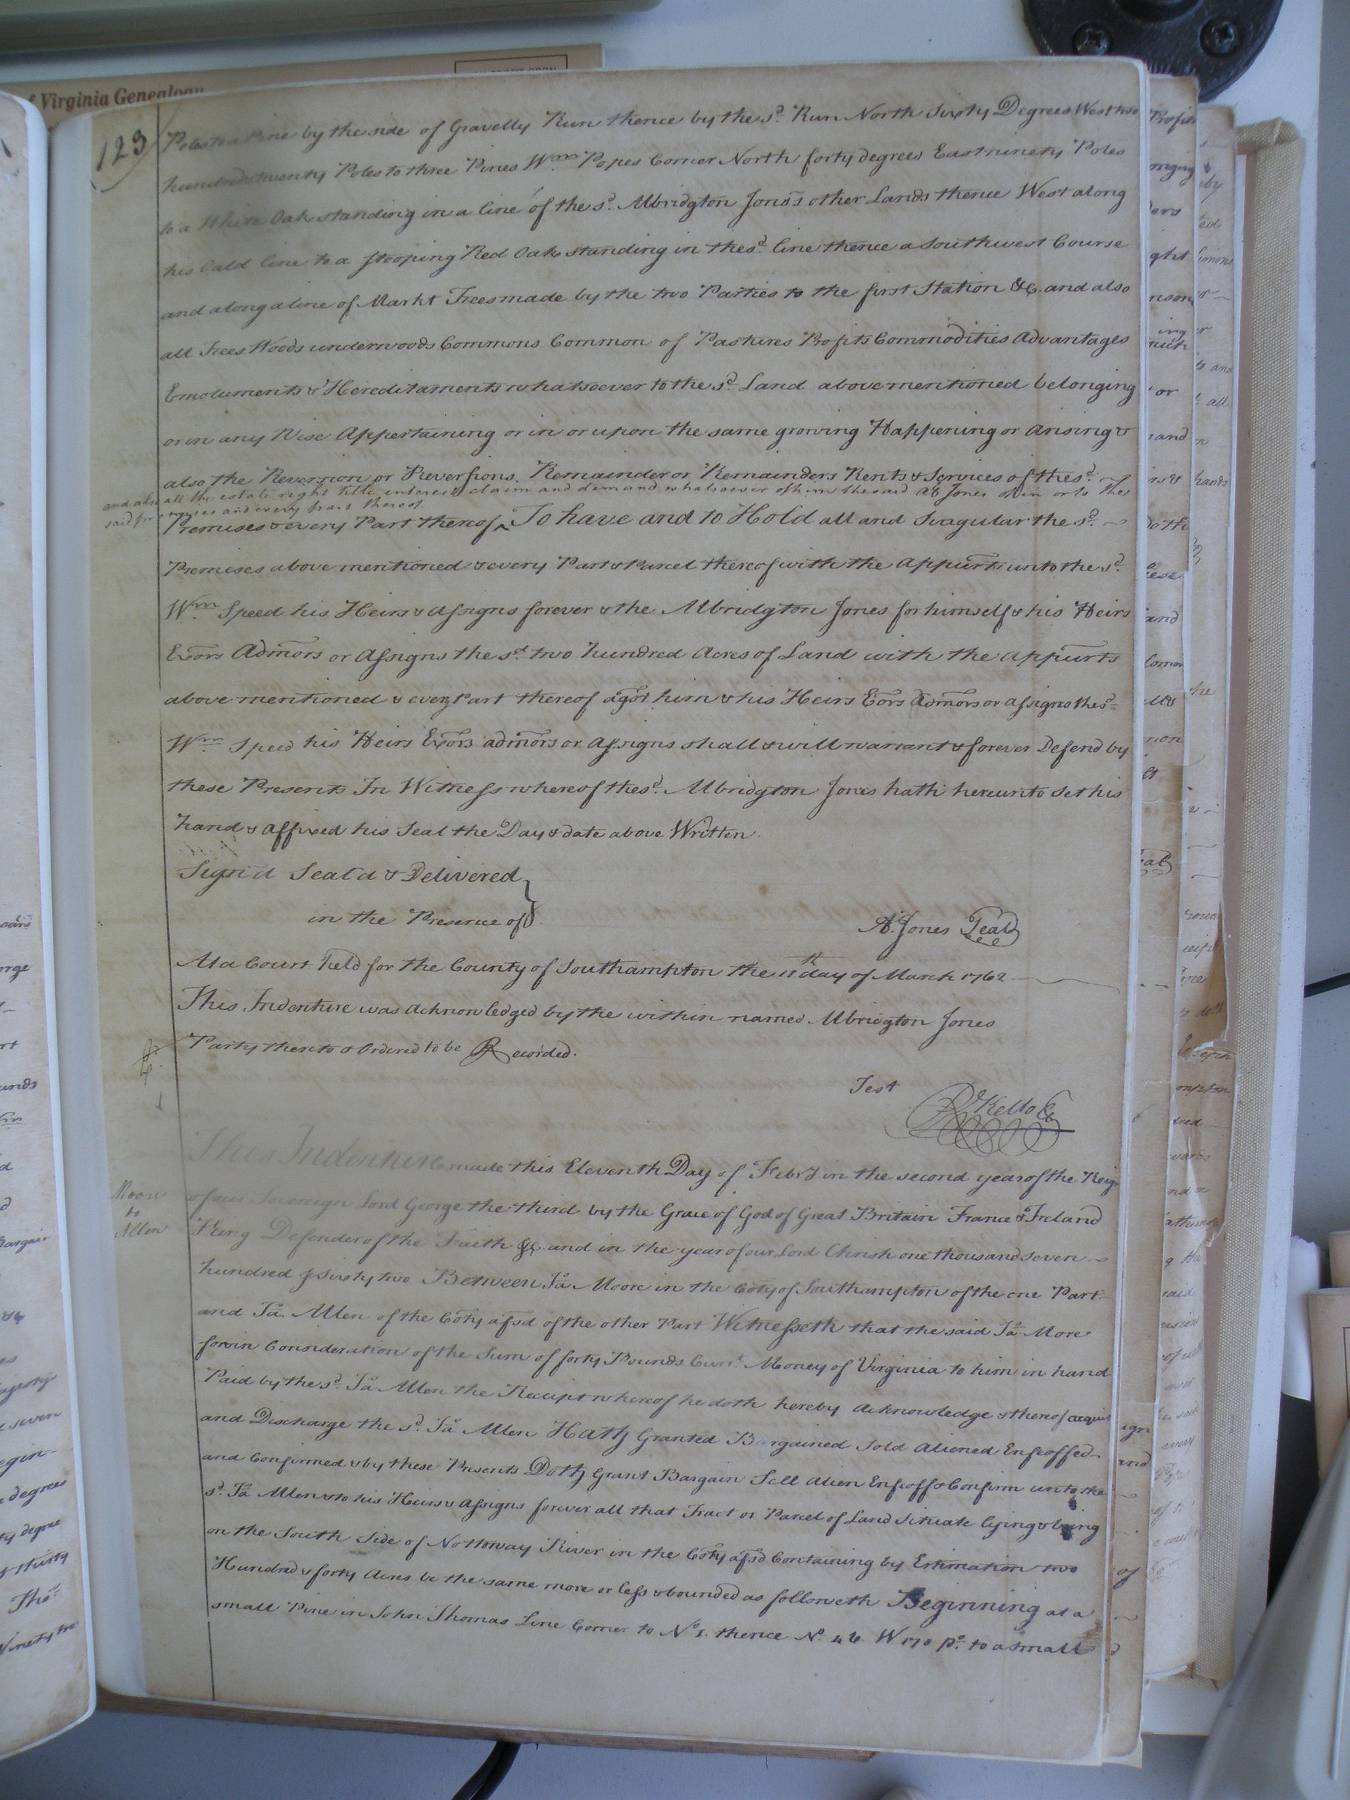 of Virginia Genealogy
123
Poles to a Pine by the side of Gravelly Run thence by the sd. Run North Sixty Degrees West two
hundred twenty Poles to three Pines Wm. Popes Corner North forty degrees East ninety Poles
to a White Oak standing in a line of the sd. Albridgton Jones's other Lands thence West along
his Oald line to a stooping Red Oak standing in the sd. line thence a Southwest Course
and along a line of Markt Trees made by the two Parties to the first Station &c. and also
all Trees Woods underwoods Commons Common of Pastures Profits Commodities Advantages
Emoluments & Hereditaments whatsoever to the sd. Land above mentioned belonging
or in any Wise Appertaining or in or upon the same growing Happening or Arising &
also the Reversion or Reversions Remainder or Remainders Rents & Services of the sd.
and also all the estate right title interest claim and demand whatsoever of him the said Ab Jones of in or to the
said premises and every part thereof
Premises & every Part thereof ^ To have and to Hold all and Singular the sd.
Premises above mentioned & every Part & Parcel thereof with the Appurts unto the sd.
Wm. Speed his Heirs & Assigns forever & the Albridgton Jones for himself & his Heirs
Exors Admors or Assigns the sd. two hundred Acres of Land with the appurts
above mentioned & every Part thereof agst him & his Heirs Exors Admors or Assigns the sd.
Wm. Speed his Heirs Exors admors or Assigns shall & will warrant & forever Defend by
these Presents In Witness whereof the sd. Albridgton Jones hath hereunto set his
hand & affixed his Seal the Day & date above Written.
Sign'd Seal'd & Delivered
in the Presence of
A. Jones Seal
At a Court held for the County of Southampton the 11th day of March 1762
This Indenture was Acknowledged by the within named Albridgton Jones
Party thereto & Ordered to be Recorded.
Test
Rd Kello Cl
Moore
to
Allen
This Indenture made this Eleventh Day of Febry in the second year of the Reign
of our Sovereign Lord George the third by the Grace of God of Great Britain France & Ireland
King Defender of the Faith &c. and in the year of our Lord Christ one thousand seven
hundred & sixty two Between Ja Moore in the Coty of Southampton of the one Part
and Ja Allen of the Coty afsd of the other Part Witnesseth that the said Ja More
for in Consideration of the Sum of forty Pounds Curt. Money of Virginia to him in hand
Paid by the sd. Ja Allen the Receipt whereof he doth hereby Acknowledge & thereof acquit
and Discharge the sd. Ja Allen Hath Granted Bargained Sold Aliened Enfeoffed
and Confirmed & by these Presents Doth Grant Bargain Sell Alien Enfeoff & Confirm unto the
sd. Ja Allen & to his Heirs & Assigns forever all that Tract or Parcel of Land Situate lying & being
on the South Side of Nottoway River in the Coty afsd Containing by Estimation two
Hundred & forty Acres be the same more or less & bounded as followeth Beginning at a
small Pine in John Thomas Line Corner to No 1. thence No. 46 W 170 po. to a small